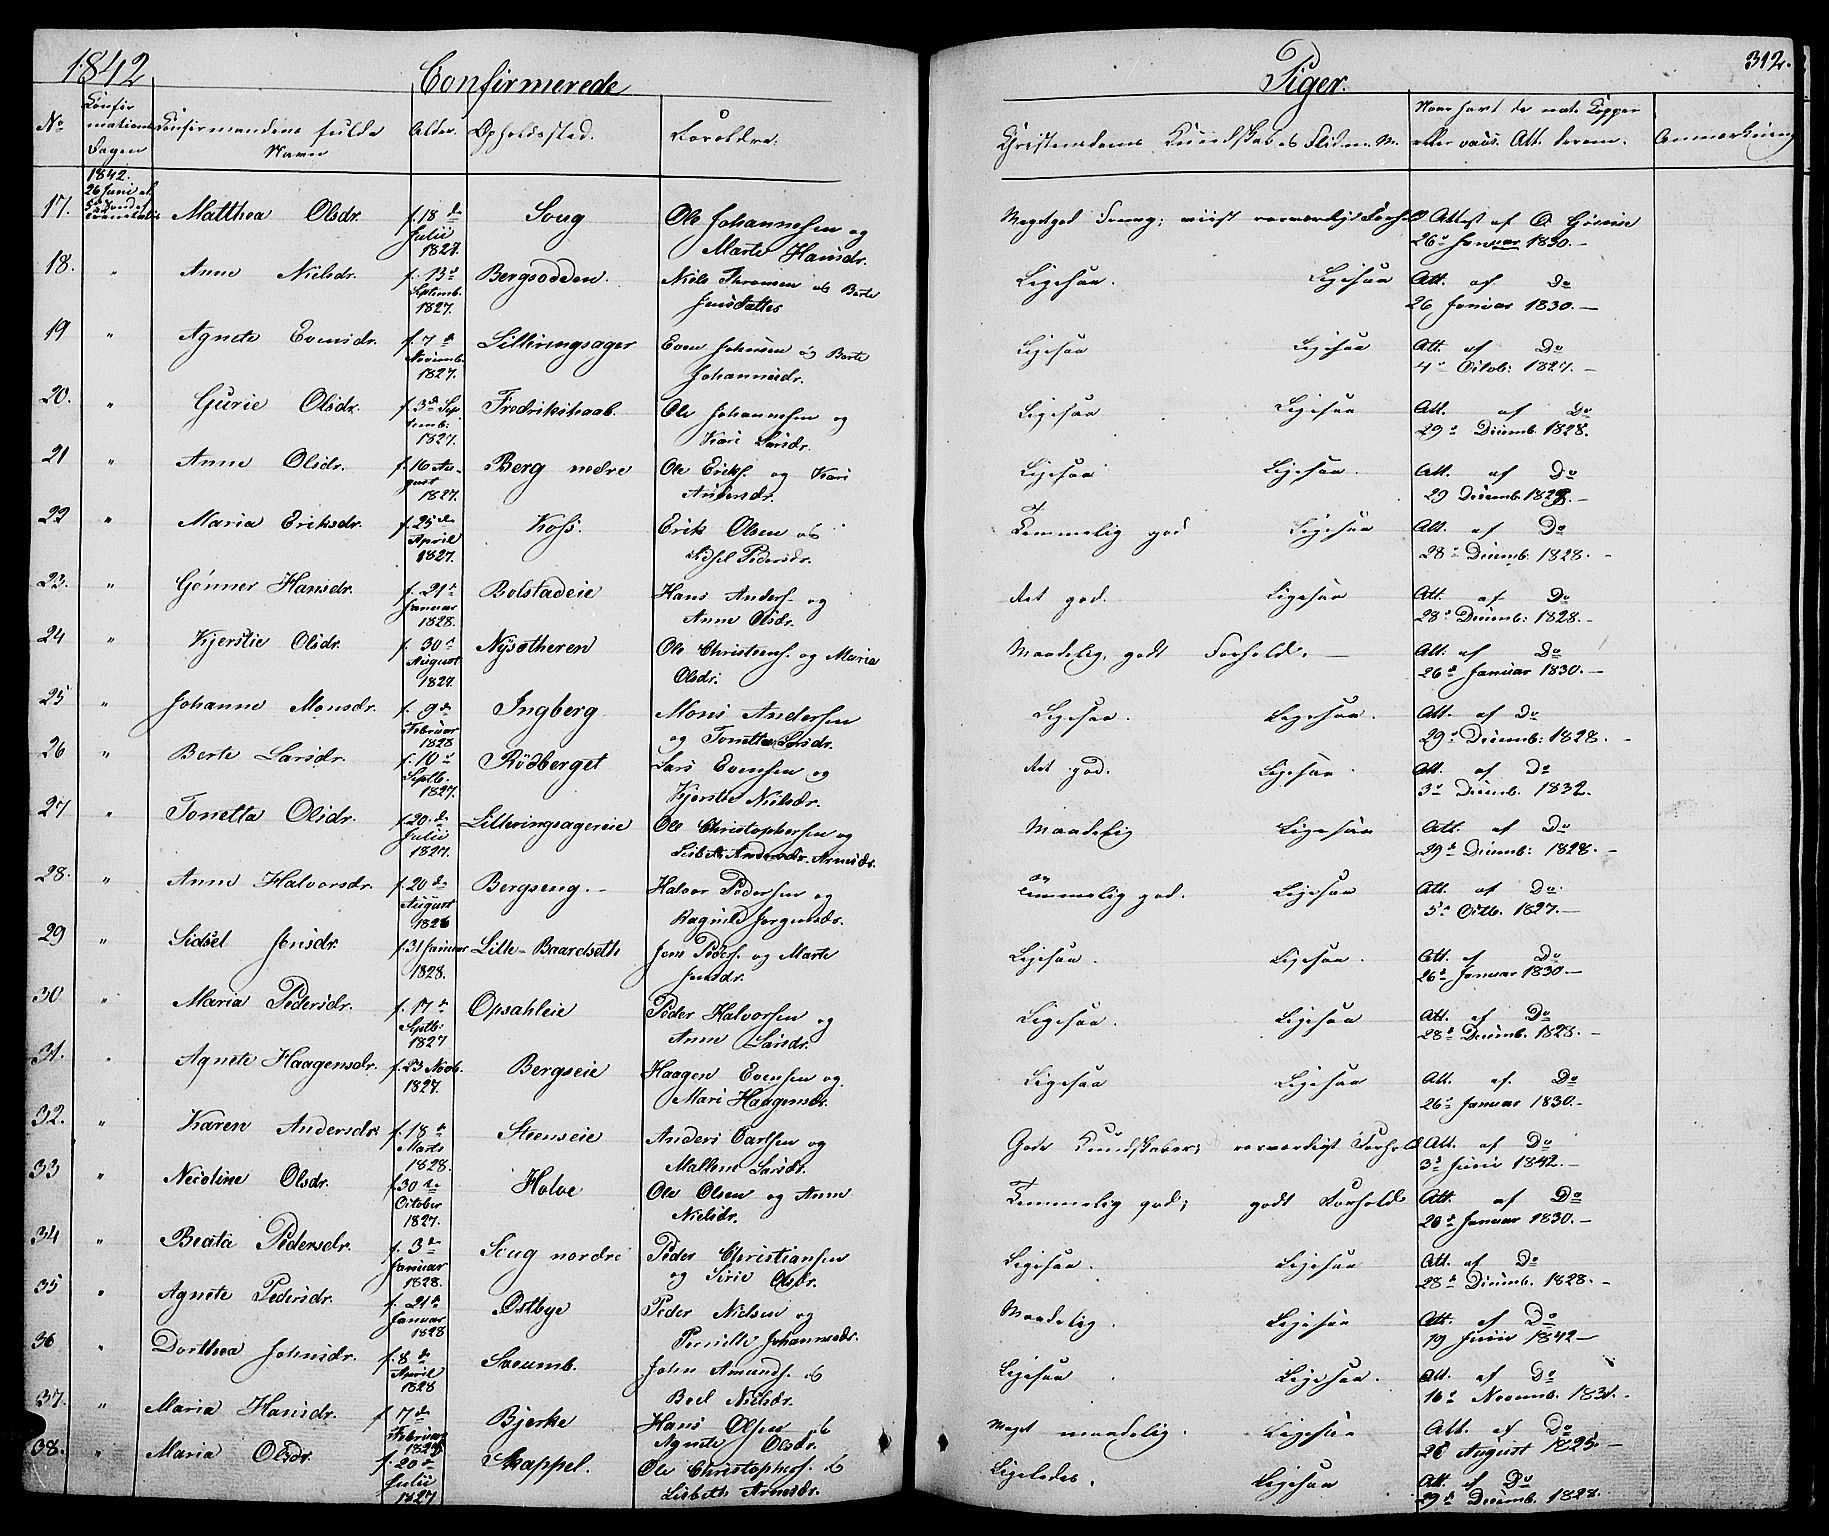 1842 Confirmerede Piger. 312.
No Confirmations Dagen Confirmandens fulde Navn Alder. Opholdssted. Forældre. Christendoms Kundskabs Flid m. M. Naar havt de nat. Kopper eller vacs. Att. derom. Anmærkning
1842.
26 Juni
17. Matthea Olsdr. f. 18 de Julii 1827. Soug Ole Johannesen og Marte Hansdr. Meget god Attest af
26de Januar 1830.-
18. " Anne Nielsdr. f. 13de Septemb. 1827. Bergsodden. Niels Thronsen og Berte Jensdatter Ligesaa. Ligesaa Att. af Do
26 Januar 1830.-
19 " Agnete Evensdr. f. 7de Novemb. 1827. Lilleringsager Even Johnsen og Berte Johannisdr. Ligesaa Ligesaa Att. af Do
4de Octob: 1827.-
20. " Gurie Olsdr. f. 3de Septemb: 1827. Fredrikshaab. Ole Johannesen og Kari Larsdr. Ligesaa Ligesaa Att. af Do
29de Decemb. 1828.
21 " Anne Olsdr. f. 16 August 1827. Berg nedre Ole Eriks. og Kari Andersdr. Ligesaa Ligesaa. Att. af Do
29 Decemb. 1828.-
22 " Maria Eriksdr. f. 25de April 1827. Koss. Erik Olsen og Sidsel Pedersdr. Temmelig god Ligesaa Att. af Do
28de Decemb. 1828.-
23. " Gønner Hansdr. f. 21de Januar 1828. Bolstadeie Hans Anders. og Anne Olsdr. Ret god. Ligesaa Att. af Do
28de Decemb: 1828.-
24 " Kjerstie Olsdr. f. 30de August 1827 Nysotheren Ole Christens. og Maria Olsdr. Maadelig, godt Forhold.- Att. af Do
26de Januar 1830.-
25 " Johanne Monsdr. f. 9de Februar 1828 Ingberg Mons Andersen og Tonetta Larsdr. Ligesaa. Ligesaa. Att. af Do
29de Decemb: 1828.-
26 " Berte Larsdr. f. 10de Septb. 1827. Rödberget Lars Evensen og Kjerstie Nielsdr. Ret god. Ligesaa. Att. af Do
3de Decemb. 1832.
27 " Tonetta Olsdr. f. 20.de Julii 1827. Lilleringsagereie Ole Christophersen og Lisbeth Andersdr. Arnesdr. Maadelig Ligesaa Att. af Do
29de Decemb: 1828.-
28. " Anne Halvorsdr. f. 20de August 1826 Bergseng.- Halvor Pedersen og Ragnild Jørgensdr. Temmelig god. Ligesaa Att. af Do.
5de Octb. 1827.-
29 " Sidsel Jensdr. f. 31 Januar 1828. Lille-Baardseth Jens Peders. og Marte Jensdr. Ligesaa. Ligesaa. Att. af Do
26de Januar 1830.-
30 " Maria Pedersdr. f. 17de Septb: 1827 Opsahleie Peder Halvorsen og Anne Larsdr. Ligesaa. Ligesaa Att. af Do
28de Decemb. 1828.-
31. " Agnete Haagensdr. f. 23 Novb. 1827. Bergseie Haagen Evensen og Mari Haagensdr. Ligesaa Ligesaa Att. af. Do
26de Januar 1830.-
32. " Karen Andersdr. f. 18de Marts 1828. Steenseie Anders Carlsen og Mallene Larsdr. Gode Kundskaber; roesværdigt Forhold Att. af Do
3de Junii 1842.-
33 " Nicoline Olsdr. f. 30de October 1827. Holve Ole Olsen og Anne Nielsdr. Temmelig god; godt Forhold Att. af Do
26de Januar 1830.-
34 " Beata Pedersdr. f. 3de Januar 1828. Soug nordre Peder Christiansen og Sirie Olsdr. Ligesaa. Ligesaa Att. af Do
28de Decemb. 1828.-
35 " Agnete Pedersdr. f. 21de Januar 1828 Østbye Peder Nielsen og Pernille Johannesdr. Maadelig. Ligesaa Att. af Do
19 Junii 1842-
36 " Dorthea Johnsdr. f. 8de April 1828 Saeumb. John Amunds. og Boel Nielsdr. Ligesaa Ligesaa. Att. af Do
16de Novemb. 1831.-
37. " Maria Hansdr. f. 7de Februar 1828 Bjerke Hans Olsen & Agnete Olsdr. Meget maadelig. Ligesaa Att. af Do
26 August 1825.-
38. " Maria Olsdr. f. 20de Julii 1827 Skappel. Ole Christophers. & Lisbeth Arnesdr. Ligeledes. Ligesaa Att. af Do
29de Decemb. 1828.-